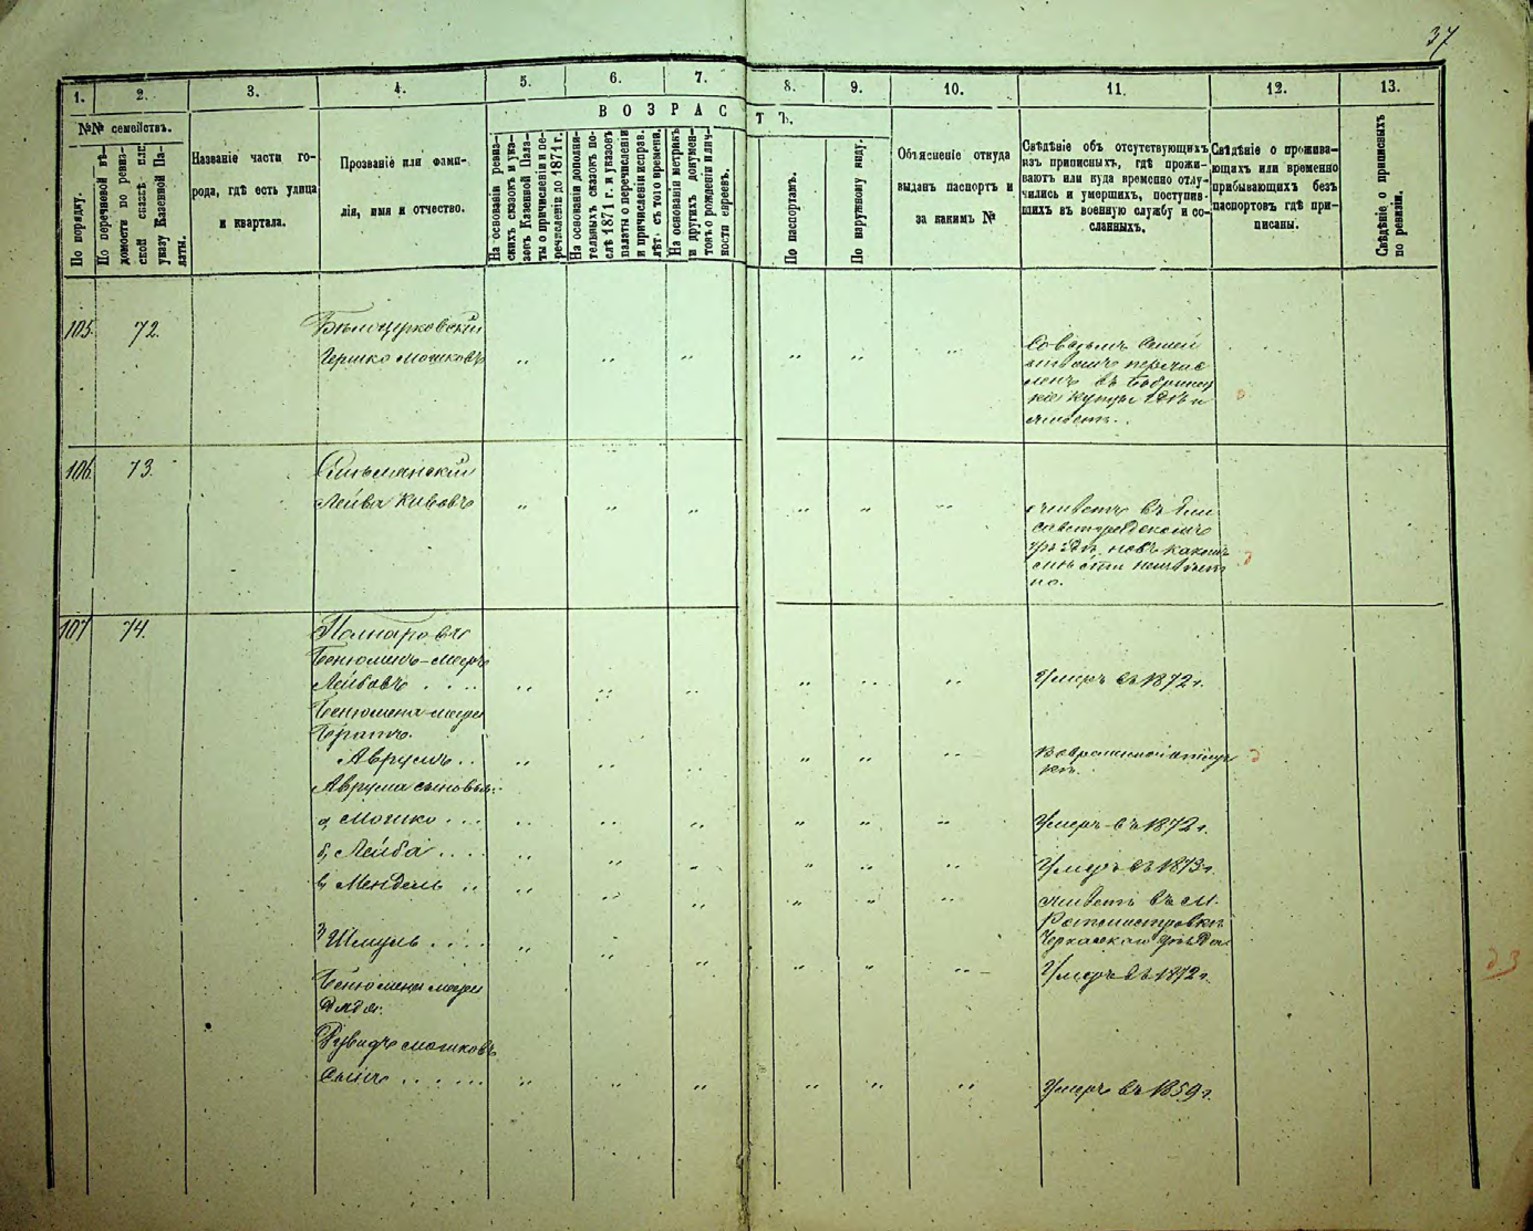 37
1. 2. 3. 4. 5. 6. 7. 8. 9. 10. 11. 12. 13.
ВОЗРАСТЪ.
№№ семействъ.
По порядку.
По перечневой вѣ-
домости по ревиз-
ской сказкѣ или
указу Казенной Па-
латы.
Названіе части го-
рода, гдѣ есть улица
и квартала.
Прозваніе или фами-
лія, имя и отчество.
На основаніи ревиз-
скихъ сказокъ и ука-
зовъ Казенной Пала-
ты о причисленіи и пе-
речисленіи до 1871 г.
На основаніи дополни-
тельныхъ сказокъ по-
слѣ 1871 г. и указовъ
палаты о перечисленіи
и причисленіи исправ.
лѣтъ съ того времени.
На основаніи метрикъ
и другихъ докумен-
товъ о рожденіи и лич-
ности евреевъ.
По паспортамъ.
По наружному виду.
Объясненіе откуда
выданъ паспортъ и
за какимъ №
Свѣдѣніе объ отсутствующихъ
изъ приписныхъ, гдѣ прожи-
ваютъ или куда временно отлу-
чились и умершихъ, поступив-
шихъ въ военную службу и со-
сланныхъ.
Свѣдѣніе о прожива-
ющихъ или временно
прибывающихъ безъ
паспортовъ гдѣ при-
писаны.
Свѣдѣніе о приписныхъ
по ревизіи.
105. 72. Бѣлоцерковскій
Гершко Мошковъ
Со всѣмъ семей
ствомъ перечис
ленъ въ Бобринец
кіе купцы
106. 73.
Лейба Кивовъ
живетъ въ Ели
саветградскомъ
уѣздѣ, но въ какомъ
мѣстѣ неизвѣст
но.
107 74.
Бенюминъ-Мееръ
Лейбовъ Умеръ въ 1872 г.
Бенюмина-Меера
братъ
Аврумъ въ временной отлуч
кѣ.
Аврума сыновья:
а, Мошко Умеръ въ 1872 г.
б, Лейба Умеръ въ 1873 г.
в, Мендель живетъ въ м.
Ротмистровкѣ
Черкаскаго уѣзда
Шмуль Умеръ въ 1872 г.
Бенюмина Меера
дядя:
Мошковъ
сынъ Умеръ въ 1859 г.